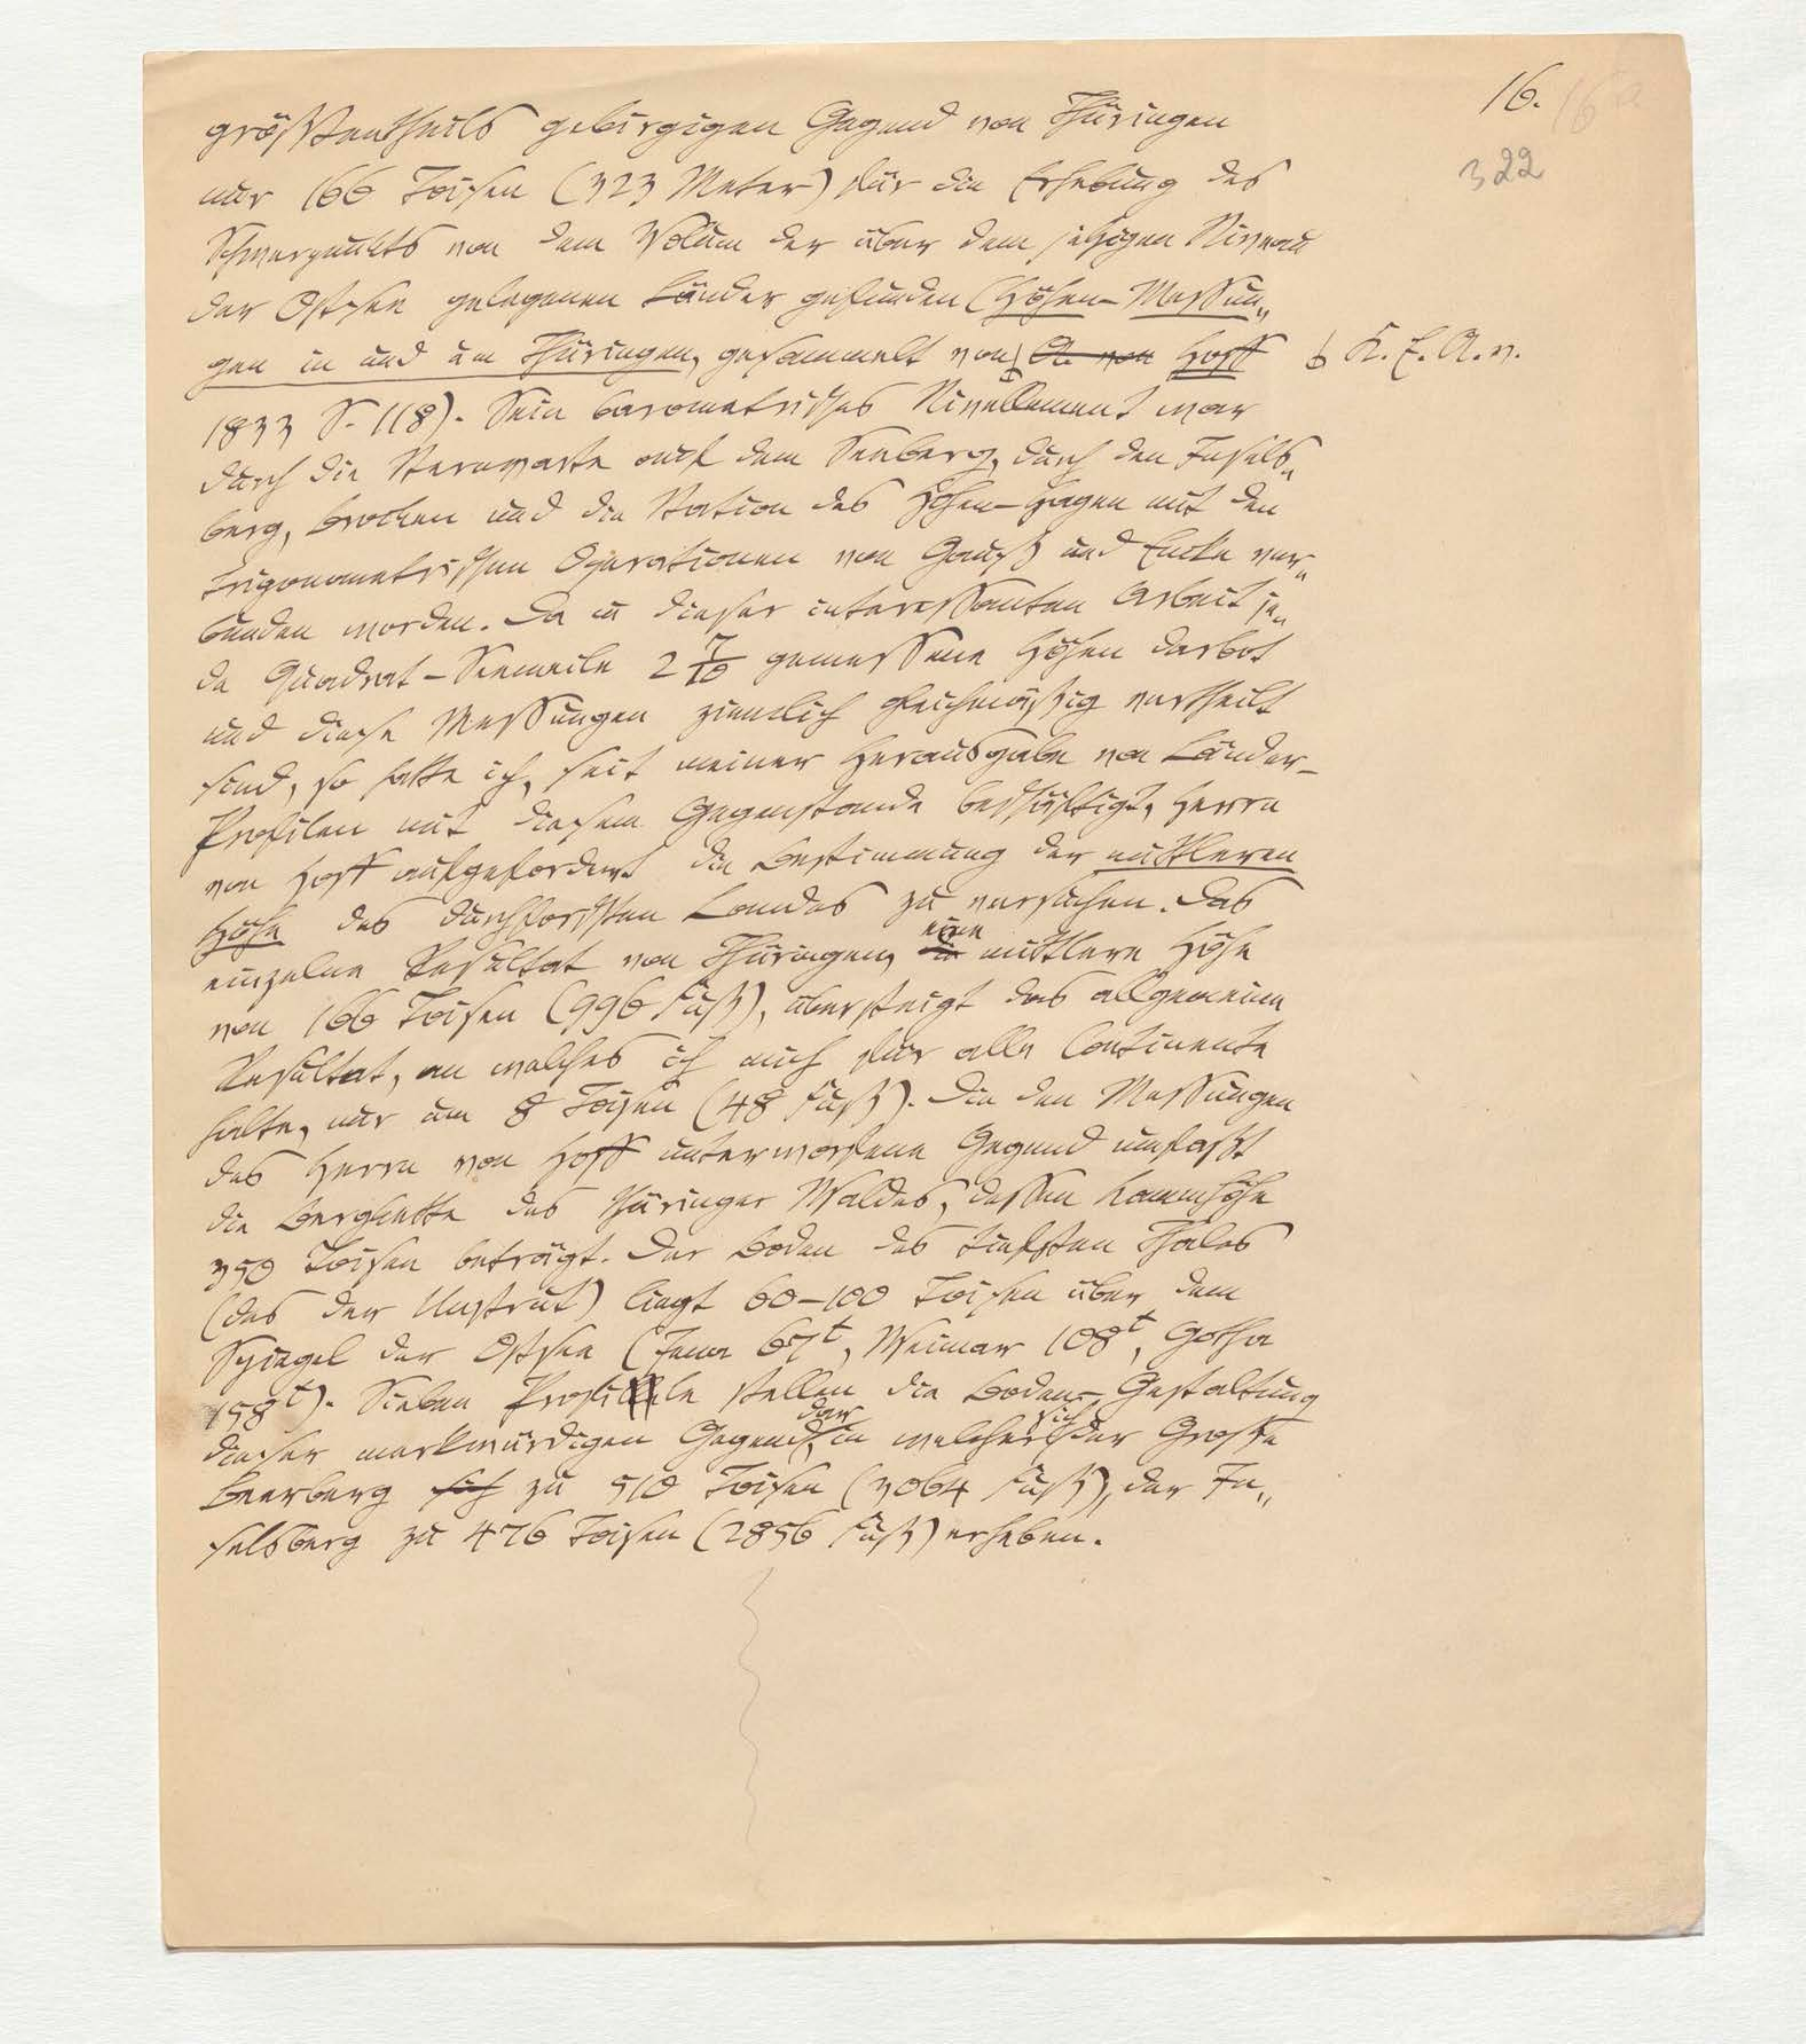 16. 16a
322
größtentheils gebirgigen Gegend von Thüringen
nur 166 Toisen (323 Meter) für die Erhebung des
Schwerpunkts von dem Volum der über dem jetzigen Niveau
der Ostsee gelegenen Länder gefunden (Höhen-Messun„
gen in und um Thüringen, gesammelt von A. von Hoff K. E. A. v.
1833 S. 118). Sein barometrisches Nivellement war
durch die Sternwarte auf dem Seeberg, durch den Insels„
berg, Brocken und die Station des Hohen-Hagen mit den
trigonometrischen Operationen von Gauß und Encke ver„
bunden worden. Da in dieser interessanten Arbeit je„
de Quadrat-Seemeile 2 7/10 gemessene Höhen darbot
und diese Messungen ziemlich gleichmäßig vertheilt
sind, so hatte ich, seit meiner Herausgabe von Länder-
Profilen mit diesem Gegenstande beschäftigt, Herrn
von Hoff aufgefordert die Bestimmung der mittleren
Höhe des durchforschten Landes zu versuchen. Das
einzelne Resultat von Thüringen, die eine mittlere Höhe
von 166 Toisen (996 Fuß), übersteigt das allgemeine
Resultat, an welches ich mich für alle Continente
halte, nur um 8 Toisen (48 Fuß). Die den Messungen
des Herrn von Hoff unterworfene Gegend umfaßt
die Bergkette des Thüringer Waldes, dessen Kammhöhe
350 Toisen beträgt. Der Boden des tiefsten Thales
(das der Unstrut) liegt 60-100 Toisen über dem
Spiegel der Ostsee (Jena 67t, Weimar 108t, Gotha
158t). Sieben Profile stellen die Boden-Gestaltung
dieser merkwürdigen Gegend dar, in welcher sich der Große
Beerberg sich zu 510 Toisen (3064 Fuß), der In„
selsberg zu 476 Toisen (2856 Fuß) erheben.